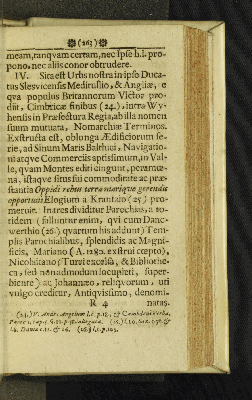 ❀ (263) ❀
meam, tanqvam certam, nec ipse h. l. pro-
pono, nec aliis conor obtrudere.
IV. Sita est Urbs nostra in ipso Duca-
tus Slesvicensis Meditullio, & Angliæ, e
qva populus Britannorum Victor pro-
diit, Cimbricæ finibus (24), intra Wy-
hensis in Præfectura Regia, ab illa nomen
suum mutuata, Nomarchiæ Terminos.
Exstructa est, oblonga Ædificiorum se-
rie, ad Sinum Maris Balthici, Navigatio-
ni atqve Commerciis aptissimum, in Val-
le, qvam Montes editi cingunt, peramœ-
na, istaqve situs sui commoditate ac præ-
stantia Oppidi rebus terra mariqve gerendis
opportuni Elogium a Krantzio (25) pro-
meruit. In tres dividitur Parochias, a to-
tidem (falluntur enim, qvi cum Danc-
werthio (26.) qvartum his addunt) Tem-
plis Parochialibus, splendidis ac Magni-
ficis, Mariano (A. 1280. exstrui cepto),
Nicolaitano (Turri excelsâ, & Bibliothe-
ca, sed nonadmodum locupleti, super-
biente) ac Johannæo, reliqvorum, uti
vulgo creditur, Antiqvissimo, denomi-
R 4 natas.